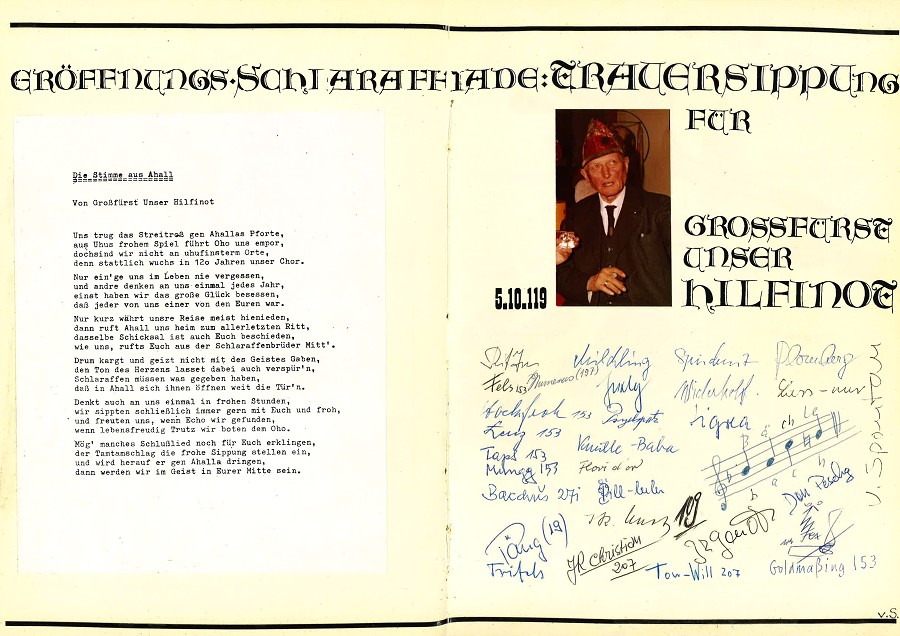 ERÖFFNUNGS·SCHLARAFFIADE: TRAUERSIPPUNG
FÜR
GROSSFÜRST
UNSER
HILFINOT
5.10.119
Die Stimme aus Ahall
Von Großfürst Unser Hilfinot
Uns trug das Streitroß gen Ahallas Pforte,
aus Uhus frohem Spiel führt Oho uns empor,
dochsind wir nicht an uhufinsterm Orte,
denn stattlich wuchs in 12o Jahren unser Chor.
Nur ein'ge uns im Leben nie vergessen,
und andre denken an uns einmal jedes Jahr,
einst haben wir das große Glück besessen,
daß jeder von uns einer von den Euren war.
Nur kurz währt unsre Reise meist hienieden,
dann ruft Ahall uns heim zum allerletzten Ritt,
dasselbe Schicksal ist auch Euch beschieden,
wie uns, rufts Euch aus der Schlaraffenbrüder Mitt'.
Drum kargt und geizt nicht mit des Geistes Gaben,
den Ton des Herzens lasset dabei auch verspür'n,
Schlaraffen müssen was gegeben haben,
daß in Ahall sich ihnen öffnen weit die Tür'n.
Denkt auch an uns einmal in frohen Stunden,
wir sippten schließlich immer gern mit Euch und froh,
und freuten uns, wenn Echo wir gefunden,
wenn lebensfreudig Trutz wir boten dem Oho.
Mög' manches Schlußlied noch für Euch erklingen,
der Tamtamschlag die frohe Sippung stellen ein,
und wird herauf er gen Ahalla dringen,
dann werden wir im Geist in Eurer Mitte sein.
Fels 153
(197)
153
Lenz 153
Taps 153
Mungg 153
Vanille-Baba
Bacchus 27i
Täng (19)
Trifels
JR Christian
207
19
Tou-Will 207
Don Pesky
Fox
Goldmaßing 153
v. S.